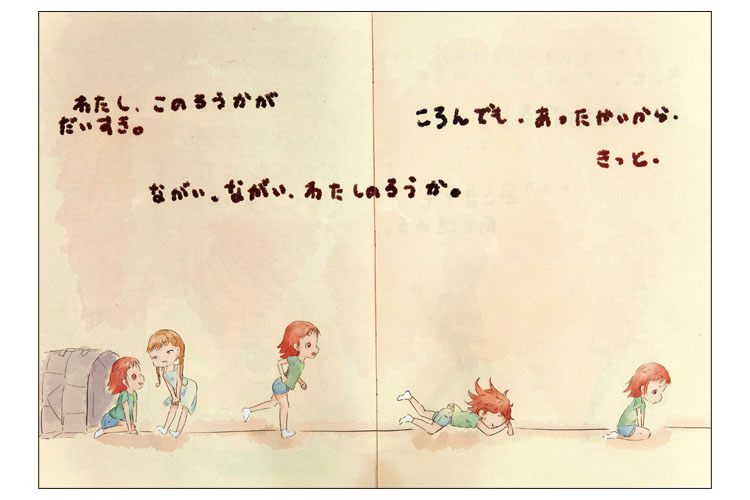 わたし、このろうかが
だいすき。
ながい、ながい、わたしのろうか。
ころんでも、あったかいから、
きっと。